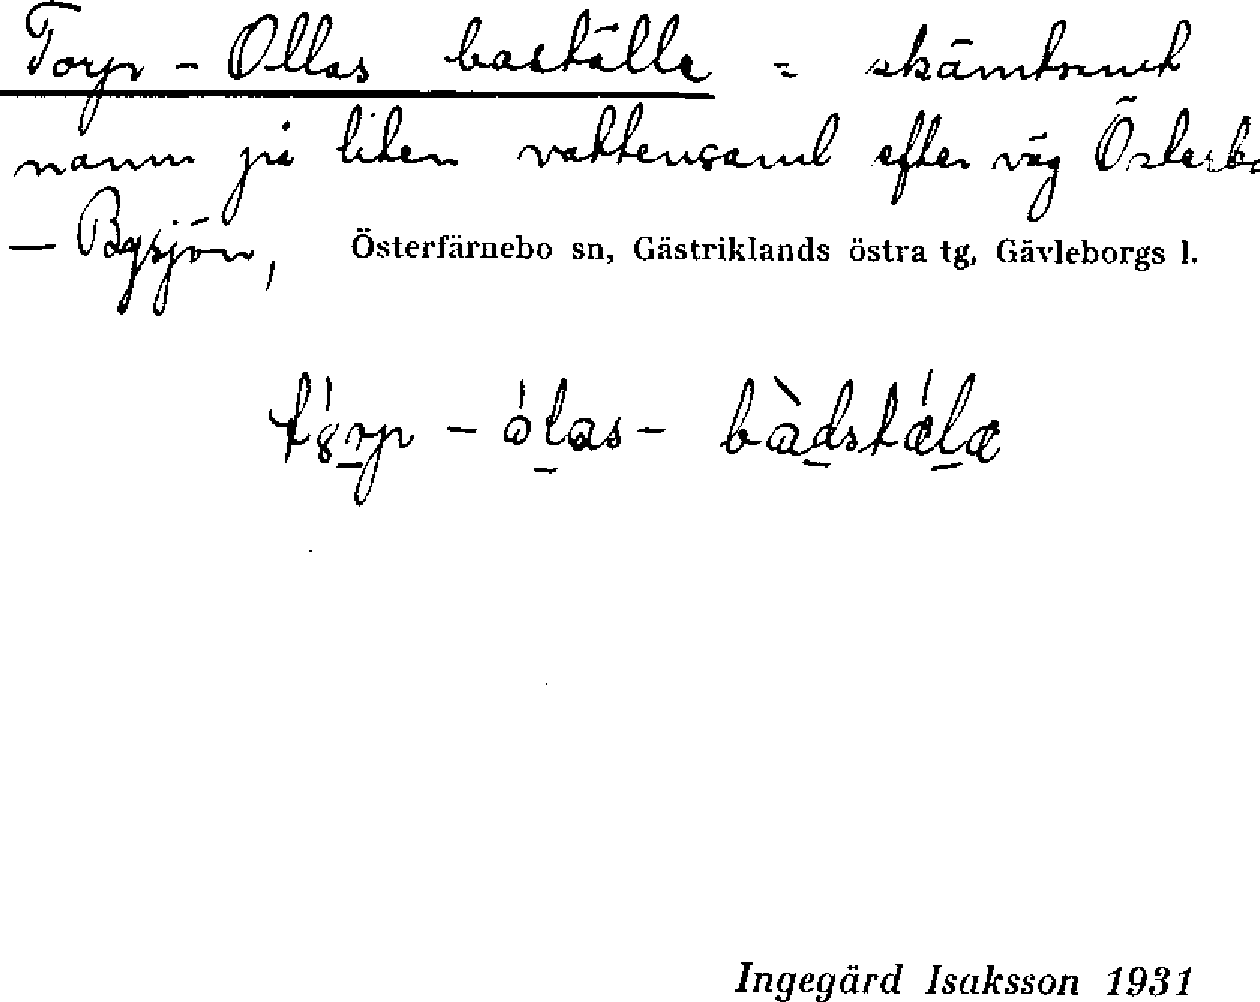 Torp - Ollas baställe = skämtsamt
namn på liten vattensaml efter väg
— Bysjön, Österfärnebo sn, Gästriklands östra tg, Gävleborgs l.
Ingegärd Isaksson 1931